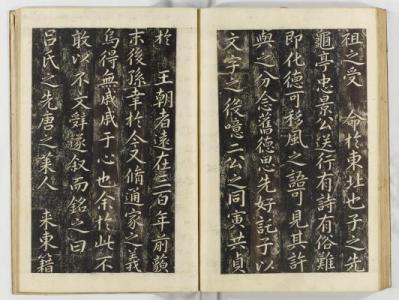 祖之受 命於東北也子之先
龜亭忠景公送行有詩有俗難
即化德可移風之語可見其許
與之分念舊德思先好託子以
文字之後噫二公之同寅共貞
於 王朝者遠在二百年前藐
末後孫幸於今又脩通家之義
烏得無戚戚于心也余於此不
敢以不文辭遂叙而銘之曰
呂氏之先唐之業人 來東籍